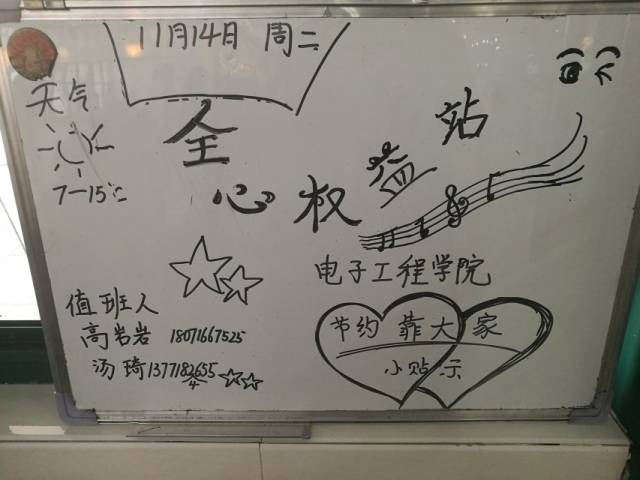 11月14日 周二
天气
7—15℃
全心权益站
电子工程学院
值班人
高岩岩 18071667525
汤琦
节约靠大家
小贴示